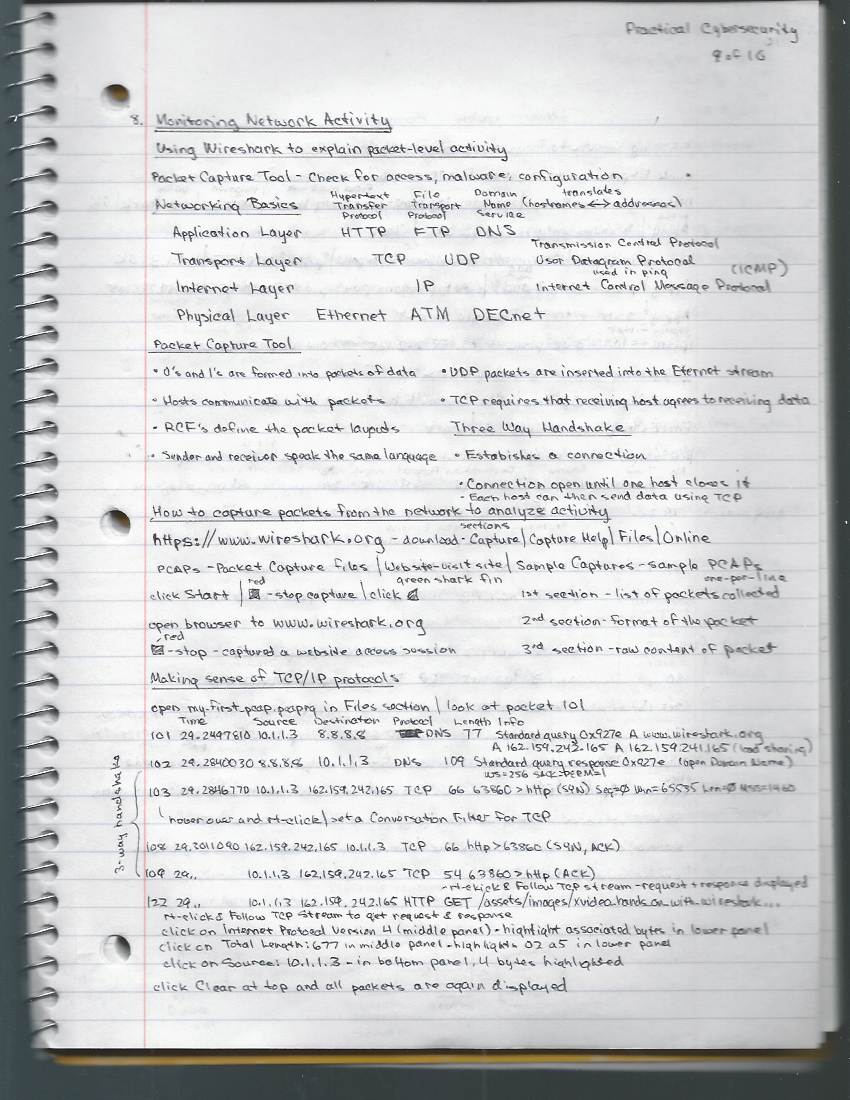 Practical Cybersecurity
9 of 16
8. Monitoring Network Activity
Using Wireshark to explain packet-level activity
Packet Capture Tool - Check for access, malware, configuration
Hypertext File Domain translates
Networking Basics Transfer Transport Name (hostnames <-> addresses)
Protocol Protocol Service
Application Layer HTTP FTP DNS
Transmission Control Protocol
Transport Layer TCP UDP User Datagram Protocol
used in ping (ICMP)
Internet Layer IP Internet Control Message Protocol
Physical Layer Ethernet ATM DECnet
Packet Capture Tool
• 0's and 1's are formed into packets of data • UDP packets are inserted into the Eternet stream
• Hosts communicate with packets • TCP requires that receiving host agrees to receiving data
• RCF's define the packet layouts Three Way Handshake
• Sender and receiver speak the same language • Estabishes a connection
• Connection open until one host closes it
- Each host can then send data using TCP
How to capture packets from the network to analyze activity
sections
https://www.wireshark.org - download - Capture | Capture Help | Files | Online
PCAPs - Packet Capture files | Website-visit site | Sample Captures - sample PCAPs
red green shark fin one-per-line
click Start | - stop capture | click 1st section - list of packets collected
open browser to www.wireshark.org 2nd section - format of the packet
red
- stop - captured a website access session 3rd section - raw content of packet
Making sense of TCP/IP protocols
open my-first-pcap.pcapng in Files section | look at packet 101
Time Source Destination Protocol Length Info
101 29.2497810 10.1.1.3 8.8.8.8 DNS 77 Standard query 0x927e A www.wireshark.org
A 162.159.242.165 A 162.159.241.165 (load sharing)
102 29.2840030 8.8.8.8 10.1.1.3 DNS 109 Standard query response 0x927e (open Domain Name)
WS=256 SACK_PERM=1
103 29.2846770 10.1.1.3 162.159.242.165 TCP 66 63860 > http (SYN) Seq=0 Win=65535 Len=0 MSS=1460
hover over and rt-click / set a Conversation Filter for TCP
3-way handshake
108 29.3011090 162.159.242.165 10.1.1.3 TCP 66 http > 63860 (SYN, ACK)
109 29.. 10.1.1.3 162.159.242.165 TCP 54 63860 > http (ACK)
- rt-click & Follow TCP stream - request + response displayed
122 29.. 10.1.1.3 162.159.242.165 HTTP GET /assets/images/xvideo.hands_on_with_wireshark...
rt-click & Follow TCP Stream to get request & response
click on Internet Protocol Version 4 (middle panel) - highlight associated bytes in lower panel
click on Total Length: 677 in middle panel - highlights 02 a5 in lower panel
click on Source: 10.1.1.3 - in bottom panel, 4 bytes highlighted
click Clear at top and all packets are again displayed